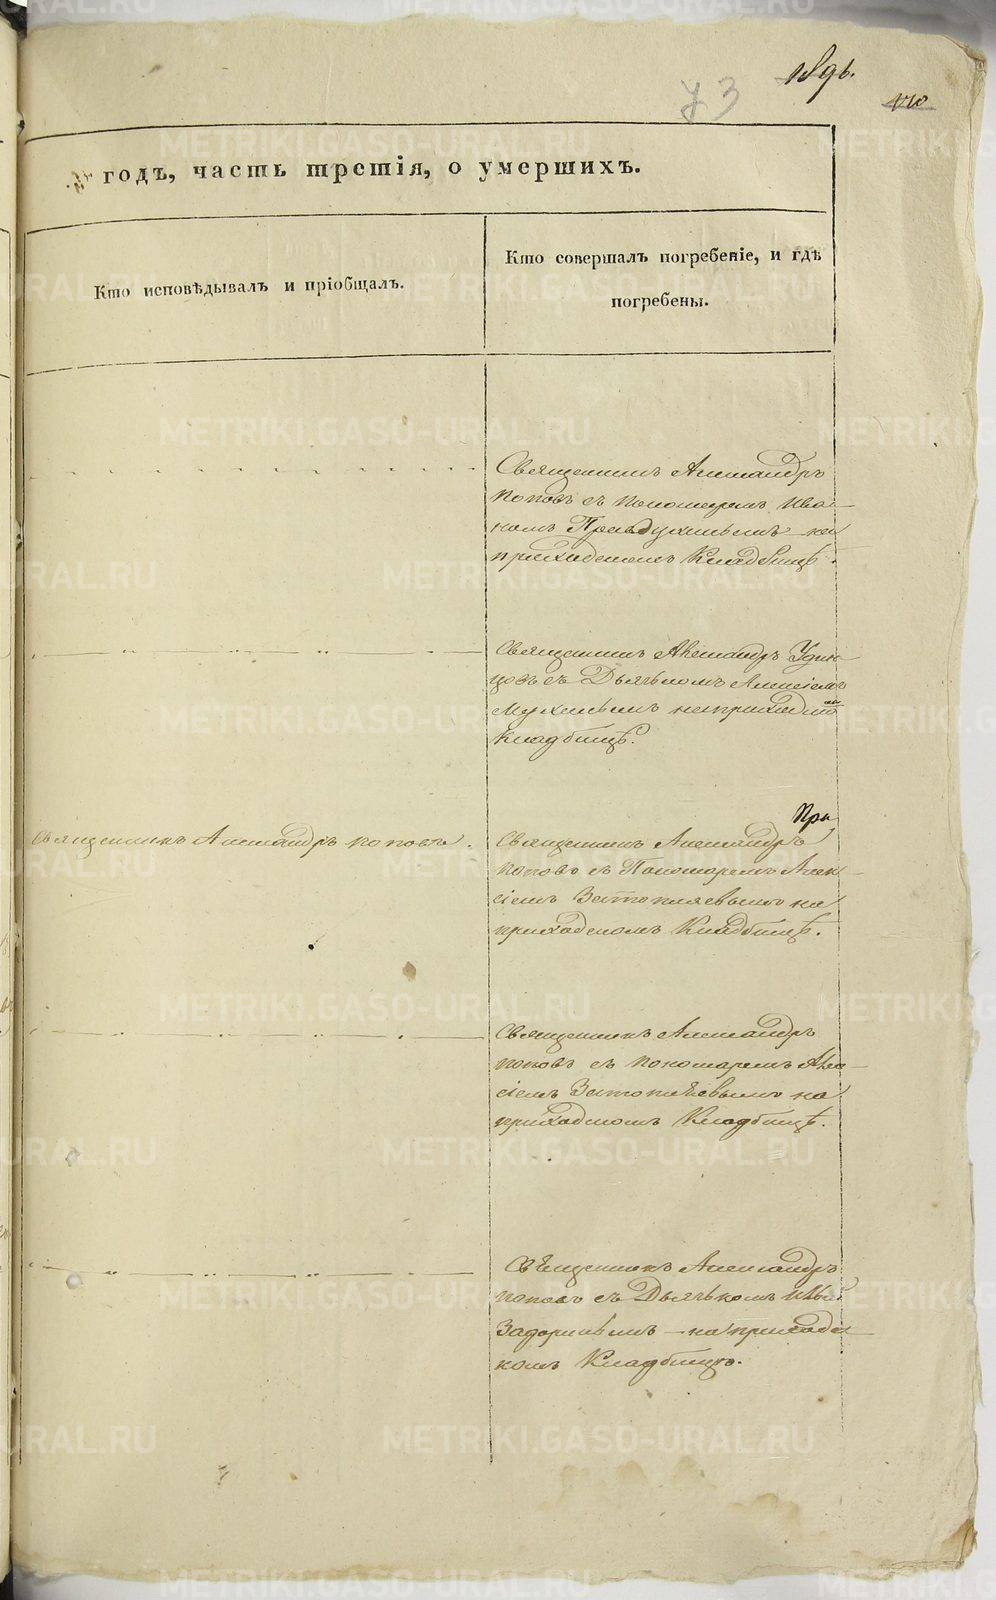 189 б.
73
170
годъ, часть третія, о умершихъ.
Кто исповѣдывалъ и пріобщалъ.
Кто совершалъ погребеніе, и гдѣ
погребены.
Священникъ Александръ
Поповъ съ Пономаремъ Ива-
номъ на
приходскомъ Кладбищѣ.
Священникъ Александръ Удин-
цовъ съ Дьячкомъ Алексіемъ
на приходском
Кладбищѣ.
При
Священникъ Александръ Поповъ.
Священникъ Александръ
Поповъ съ Пономаремъ Алек-
сіемъ на
приходскомъ Кладбищѣ.
Священникъ Александръ
Поповъ съ Пономаремъ Алек-
сіемъ на
приходскомъ Кладбищѣ.
Священникъ Александръ
Поповъ съ Дьячькомъ
на приходс-
комъ Кладбищѣ.
METRIKI.GASO-URAL.RU